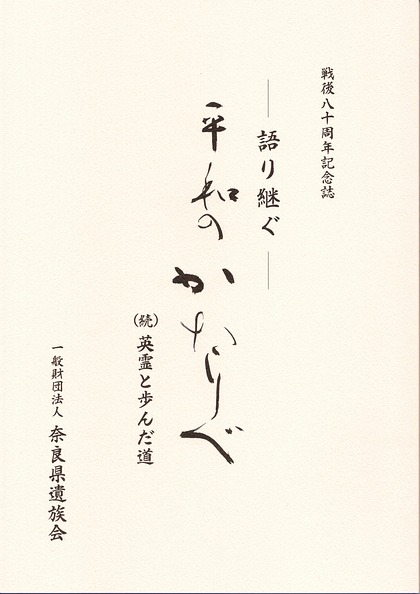 戦後八十周年記念誌
―語り継ぐ―
平和のかたりべ
(続)英霊と歩んだ道
一般財団法人 奈良県遺族会